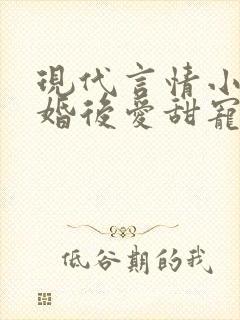 現代言情小
婚後愛甜寵
低谷期的我